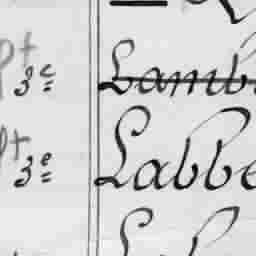 pt 3e Lamb
pt 3e Labbe